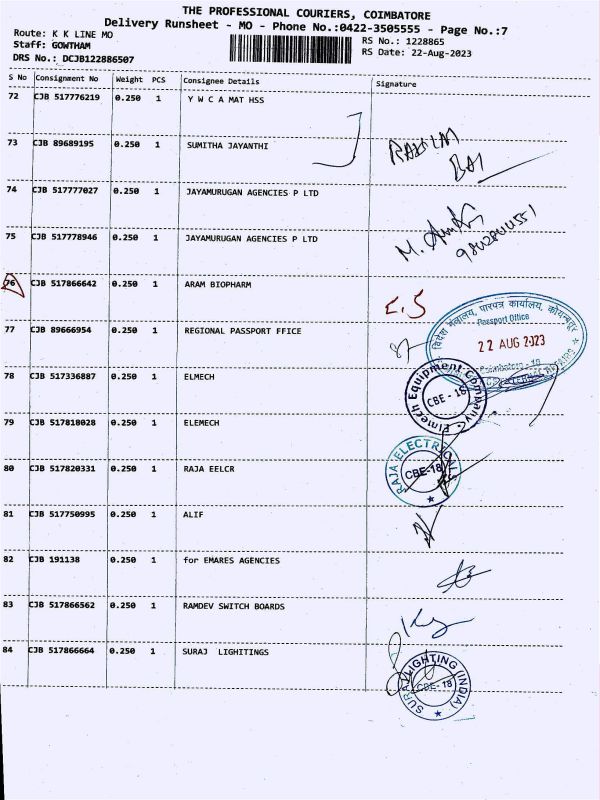 THE PROFESSIONAL COURIERS, COIMBATORE
Delivery Runsheet - MO - Phone No.:0422-3505555 - Page No.:7
Route: K K LINE MO
RS No.: 1228865
Staff: GOWTHAM
RS Date: 22-Aug-2023
DRS No.: DCJB122886507
S No Consignment No Weight PCS Consignee Details Signature
72 CJB 517776219 0.250 1 Y W C A MAT HSS
73 CJB 89689195 0.250 1 SUMITHA JAYANTHI
74 CJB 517777027 0.250 1 JAYAMURUGAN AGENCIES P LTD
75 CJB 517778946 0.250 1 JAYAMURUGAN AGENCIES P LTD
76 CJB 517866642 0.250 1 ARAM BIOPHARM
77 CJB 89666954 0.250 1 REGIONAL PASSPORT FFICE
विदेश मंत्रालय, पारपत्र कार्यालय, कोयम्बतूर
Passport Office
22 AUG 2023
Coimbatore - 18
78 CJB 517336887 0.250 1 ELMECH
Elmech Equipment Company
CBE - 18
79 CJB 517818028 0.250 1 ELEMECH
80 CJB 517820331 0.250 1 RAJA EELCR
RAJA ELECTRICALS
CBE-18
81 CJB 517750995 0.250 1 ALIF
82 CJB 191138 0.250 1 for EMARES AGENCIES
83 CJB 517866562 0.250 1 RAMDEV SWITCH BOARDS
84 CJB 517866664 0.250 1 SURAJ LIGHITINGS
SURAJ LIGHTING (INDIA)
CBE - 18